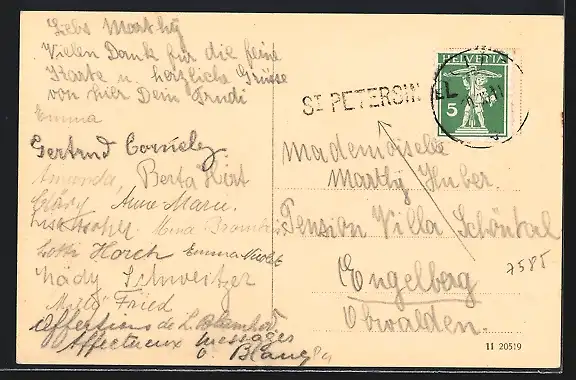 Liebs Marthy
Vielen Dank für die feine
Karte u. herzliche Grüsse
von hier Dein Trudi
Emma
Gertrud Cornelz
Amanda, Berta Hirt
Cläry Anne Marie.
Mina
Lotti Horch Emma Nicolet
Mädy Schweitzer
Fried
Affections de L. Blumhof
Affectueux messages
ST PETERSIN
HELVETIA
5
Mademoiselle
Marthy Huber.
Pension Villa Schöntal
Engelberg
Obwalden.
7585
11 20519